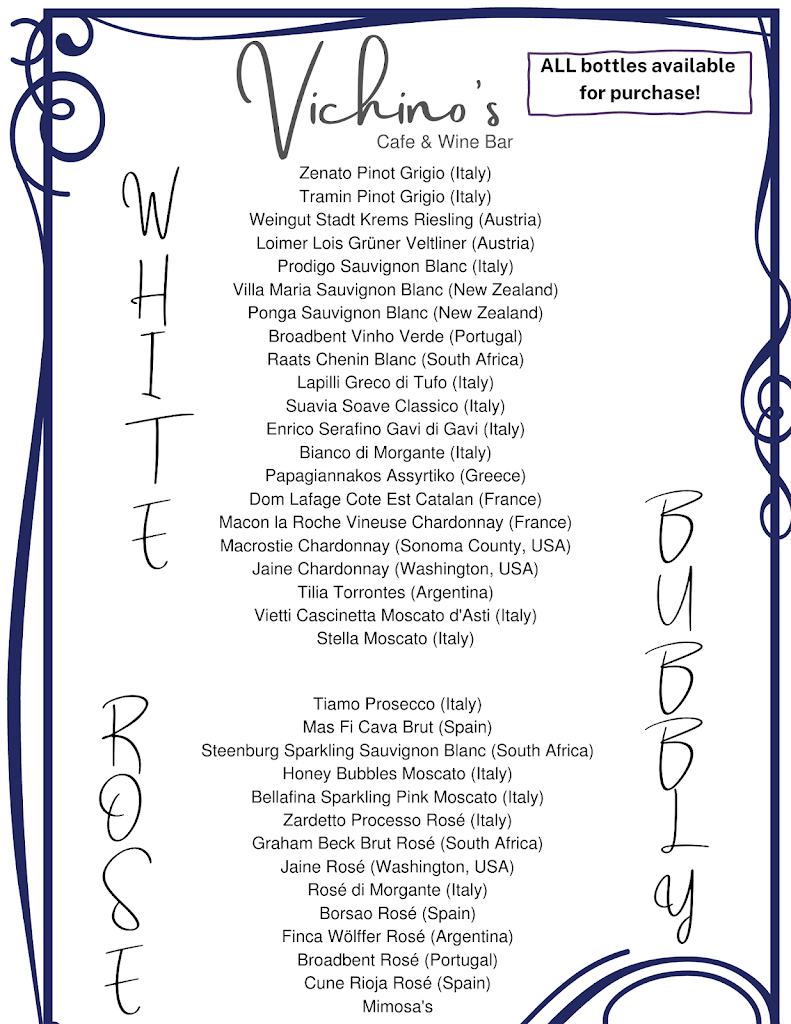 Vichino's
Cafe & Wine Bar
ALL bottles available
for purchase!
WHITE
Zenato Pinot Grigio (Italy)
Tramin Pinot Grigio (Italy)
Weingut Stadt Krems Riesling (Austria)
Loimer Lois Grüner Veltliner (Austria)
Prodigo Sauvignon Blanc (Italy)
Villa Maria Sauvignon Blanc (New Zealand)
Ponga Sauvignon Blanc (New Zealand)
Broadbent Vinho Verde (Portugal)
Raats Chenin Blanc (South Africa)
Lapilli Greco di Tufo (Italy)
Suavia Soave Classico (Italy)
Enrico Serafino Gavi di Gavi (Italy)
Bianco di Morgante (Italy)
Papagiannakos Assyrtiko (Greece)
Dom Lafage Cote Est Catalan (France)
Macon la Roche Vineuse Chardonnay (France)
Macrostie Chardonnay (Sonoma County, USA)
Jaine Chardonnay (Washington, USA)
Tilia Torrontes (Argentina)
Vietti Cascinetta Moscato d'Asti (Italy)
Stella Moscato (Italy)
BUBBLY
ROSE
Tiamo Prosecco (Italy)
Mas Fi Cava Brut (Spain)
Steenburg Sparkling Sauvignon Blanc (South Africa)
Honey Bubbles Moscato (Italy)
Bellafina Sparkling Pink Moscato (Italy)
Zardetto Processo Rosé (Italy)
Graham Beck Brut Rosé (South Africa)
Jaine Rosé (Washington, USA)
Rosé di Morgante (Italy)
Borsao Rosé (Spain)
Finca Wölffer Rosé (Argentina)
Broadbent Rosé (Portugal)
Cune Rioja Rosé (Spain)
Mimosa's